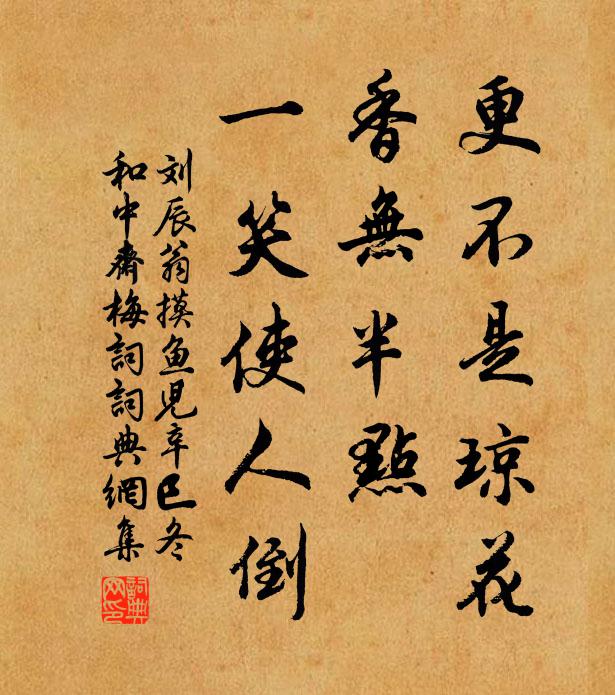 更不是琼花
香無半點
一笑使人倒
刘辰翁摸鱼児辛巳冬
和中齋梅詞詞典網集
詞典网印